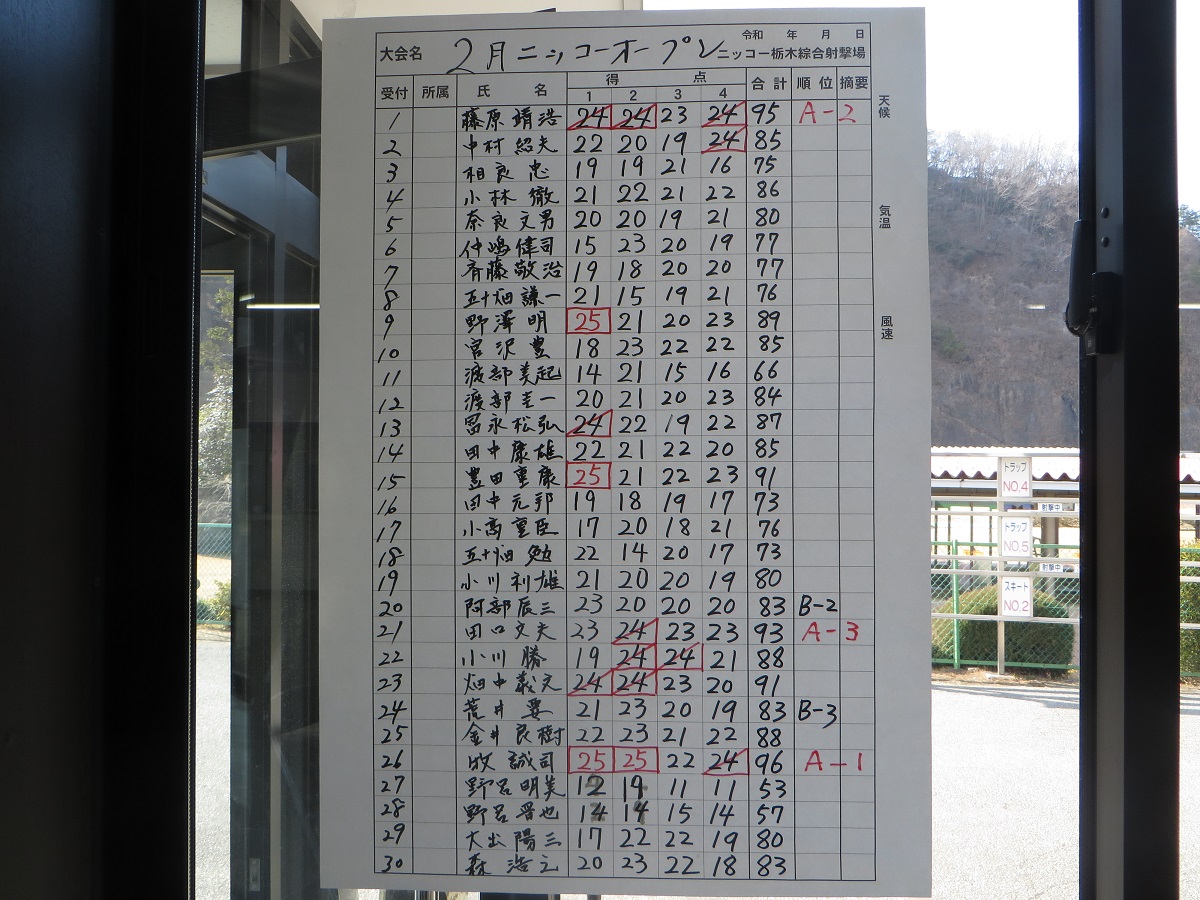 令和 年 月 日
大会名 2月ニッコーオープン ニッコー栃木綜合射撃場
受付 所属 氏 名 得 点 合計 順位 摘要
1 2 3 4
1 藤原靖浩 24 24 23 24 95 A-2
2 中村紹夫 22 20 19 24 85
3 相良忠 19 19 21 16 75
4 小林徹 21 22 21 22 86
5 奈良文男 20 20 19 21 80
6 仲嶋偉司 15 23 20 19 77
7 斉藤敬治 19 18 20 20 77
8 五十畑謙一 21 15 19 21 76
9 野澤明 25 21 20 23 89
10 宮沢豊 18 23 22 22 85
11 渡部美起 14 21 15 16 66
12 渡部圭一 20 21 20 23 84
13 冨永松弘 24 22 19 22 87
14 田中康雄 22 21 22 20 85
15 豊田重康 25 21 22 23 91
16 田中元邦 19 18 19 17 73
17 小高重臣 17 20 18 21 76
18 五十畑勉 22 14 20 17 73
19 小川利雄 21 20 20 19 80
20 阿部辰三 23 20 20 20 83 B-2
21 田口文夫 23 24 23 23 93 A-3
22 小川勝 19 24 24 21 88
23 畑中義文 24 24 23 20 91
24 荒井要 21 23 20 19 83 B-3
25 金井良樹 22 23 21 22 88
26 牧誠司 25 25 22 24 96 A-1
27 野呂明美 12 19 11 11 53
28 野呂晋也 14 14 15 14 57
29 大出陽三 17 22 22 19 80
30 森浩之 20 23 22 18 83
天候
気温
風速
トラップ
NO.4
射撃中
トラップ
NO.5
射撃中
スキート
NO.2